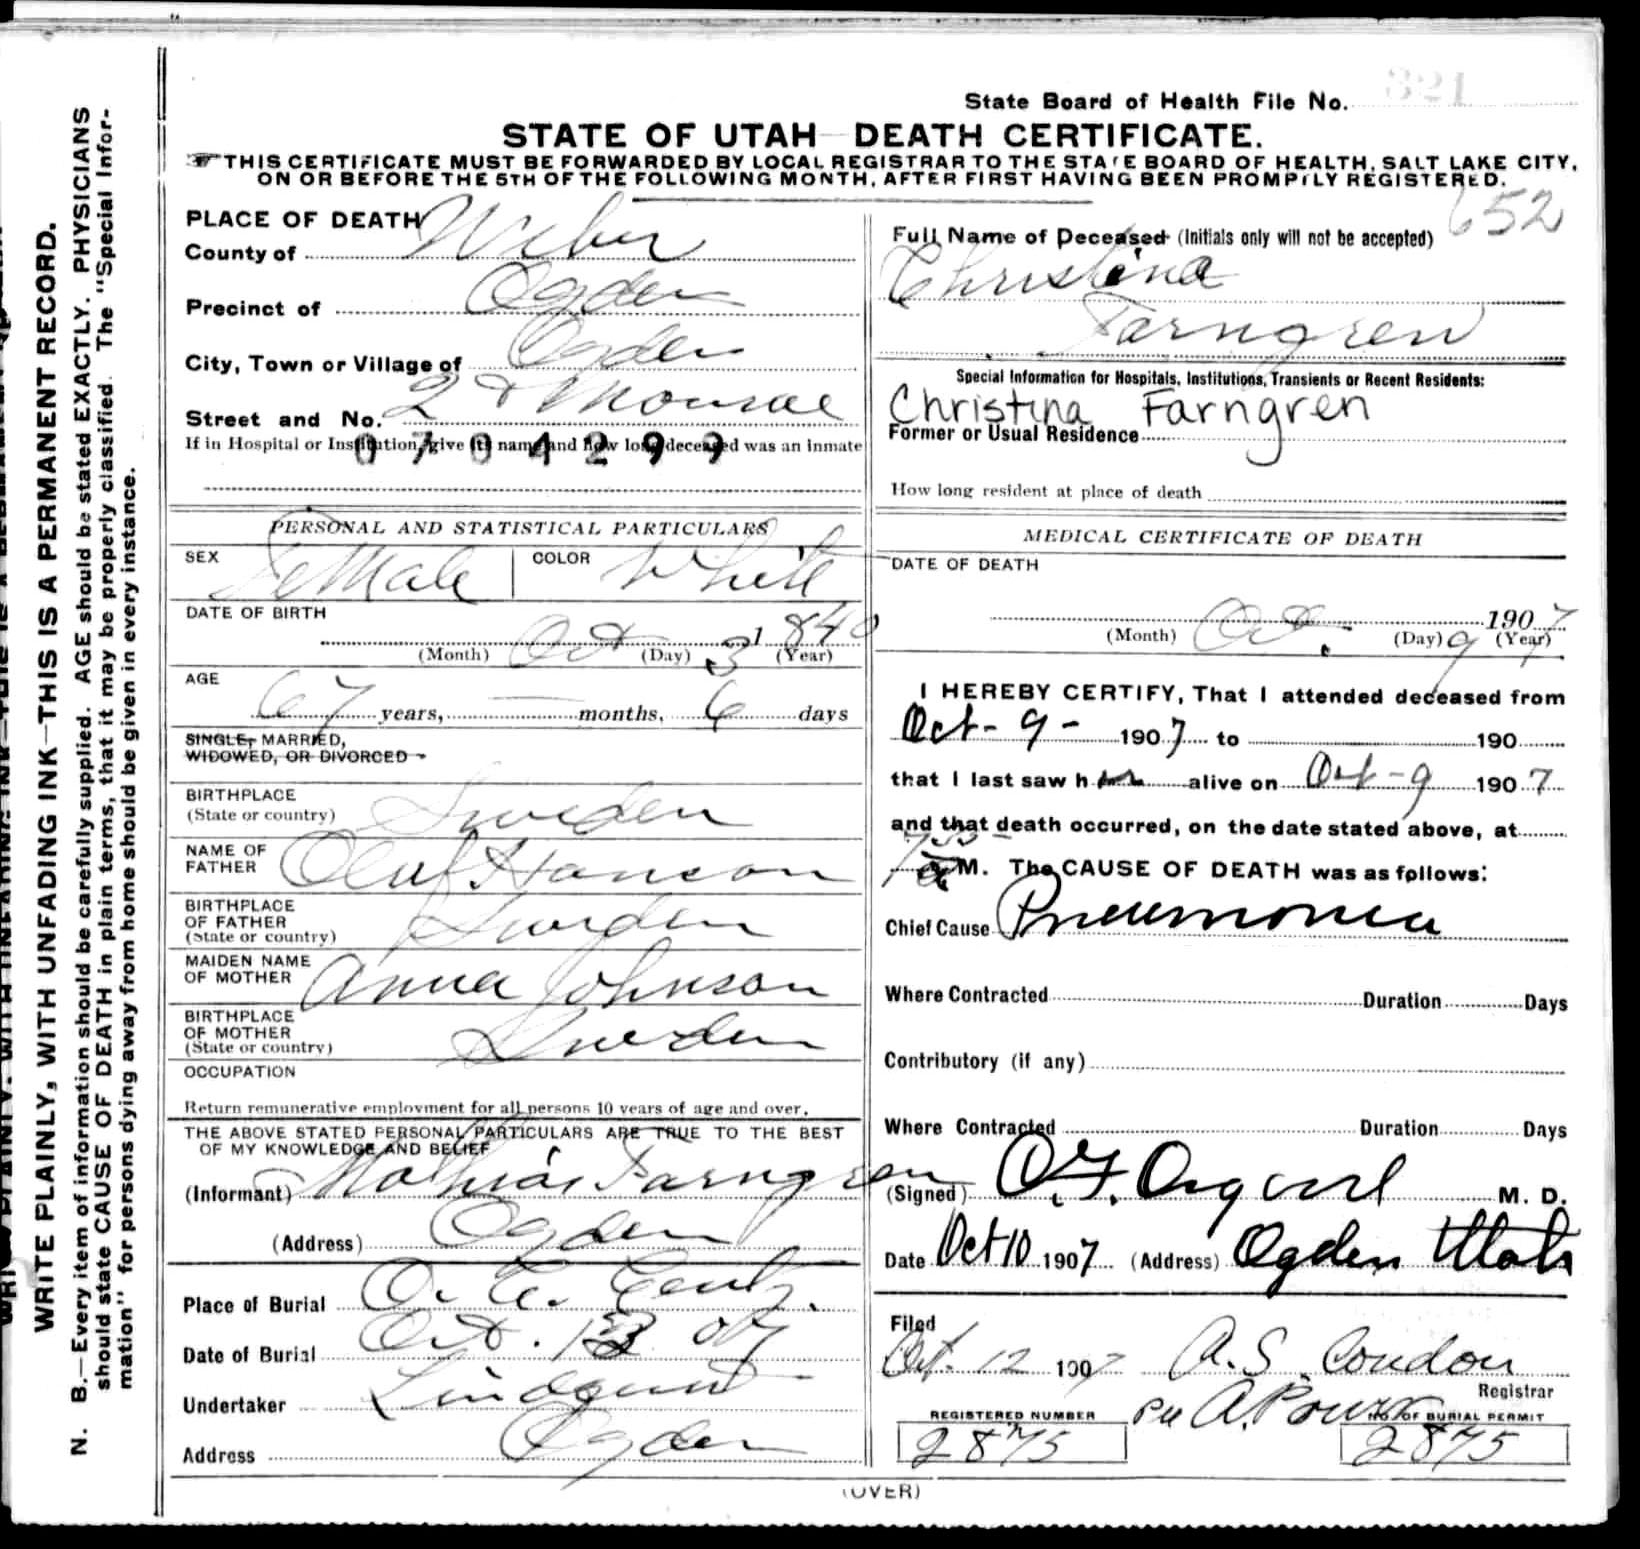 State Board of Health File No. 321
STATE OF UTAH—DEATH CERTIFICATE.
THIS CERTIFICATE MUST BE FORWARDED BY LOCAL REGISTRAR TO THE STATE BOARD OF HEALTH, SALT LAKE CITY,
ON OR BEFORE THE 5TH OF THE FOLLOWING MONTH, AFTER FIRST HAVING BEEN PROMPTLY REGISTERED.
652
PLACE OF DEATH
County of Weber
Precinct of Ogden
City, Town or Village of Ogden
Street and No. 2d & Monroe
If in Hospital or Institution, give its name and how long deceased was an inmate
0704299
PERSONAL AND STATISTICAL PARTICULARS
SEX Female COLOR White
DATE OF BIRTH
Oct 3 1840
(Month) (Day) (Year)
AGE
67 years, — months, 6 days
SINGLE, MARRIED,
WIDOWED, OR DIVORCED
BIRTHPLACE
(State or country) Sweden
NAME OF
FATHER Oluf Hanson
BIRTHPLACE
OF FATHER
(State or country) Sweden
MAIDEN NAME
OF MOTHER Anna Johnson
BIRTHPLACE
OF MOTHER
(State or country) Sweden
OCCUPATION
Return remunerative employment for all persons 10 years of age and over.
THE ABOVE STATED PERSONAL PARTICULARS ARE TRUE TO THE BEST
OF MY KNOWLEDGE AND BELIEF
(Informant) Mathias Farngren
(Address) Ogden
Place of Burial O. C. Cemty.
Date of Burial Oct. 13 07
Undertaker Lindquist
Address Ogden
Full Name of Deceased (Initials only will not be accepted)
Christina
Farngren
Special Information for Hospitals, Institutions, Transients or Recent Residents:
Christina Farngren
Former or Usual Residence
How long resident at place of death
MEDICAL CERTIFICATE OF DEATH
DATE OF DEATH
Oct. 9 1907
(Month) (Day) (Year)
I HEREBY CERTIFY, That I attended deceased from
Oct- 9- 1907 to 190
that I last saw her alive on Oct-9 1907
and that death occurred, on the date stated above, at
M. The CAUSE OF DEATH was as follows:
Chief Cause Pneumonia
Where Contracted Duration Days
Contributory (if any)
Where Contracted Duration Days
(Signed) M. D.
Date Oct 10 1907 (Address) Ogden Utah
Filed
Oct. 12 1907 A. S. Condon
Registrar
REGISTERED NUMBER NO. OF BURIAL PERMIT
2875 2875
(OVER)
WRITE PLAINLY, WITH UNFADING INK—THIS IS A PERMANENT RECORD.
N. B.—Every item of information should be carefully supplied. AGE should be stated EXACTLY. PHYSICIANS
should state CAUSE OF DEATH in plain terms, that it may be properly classified. The "Special Infor-
mation" for persons dying away from home should be given in every instance.